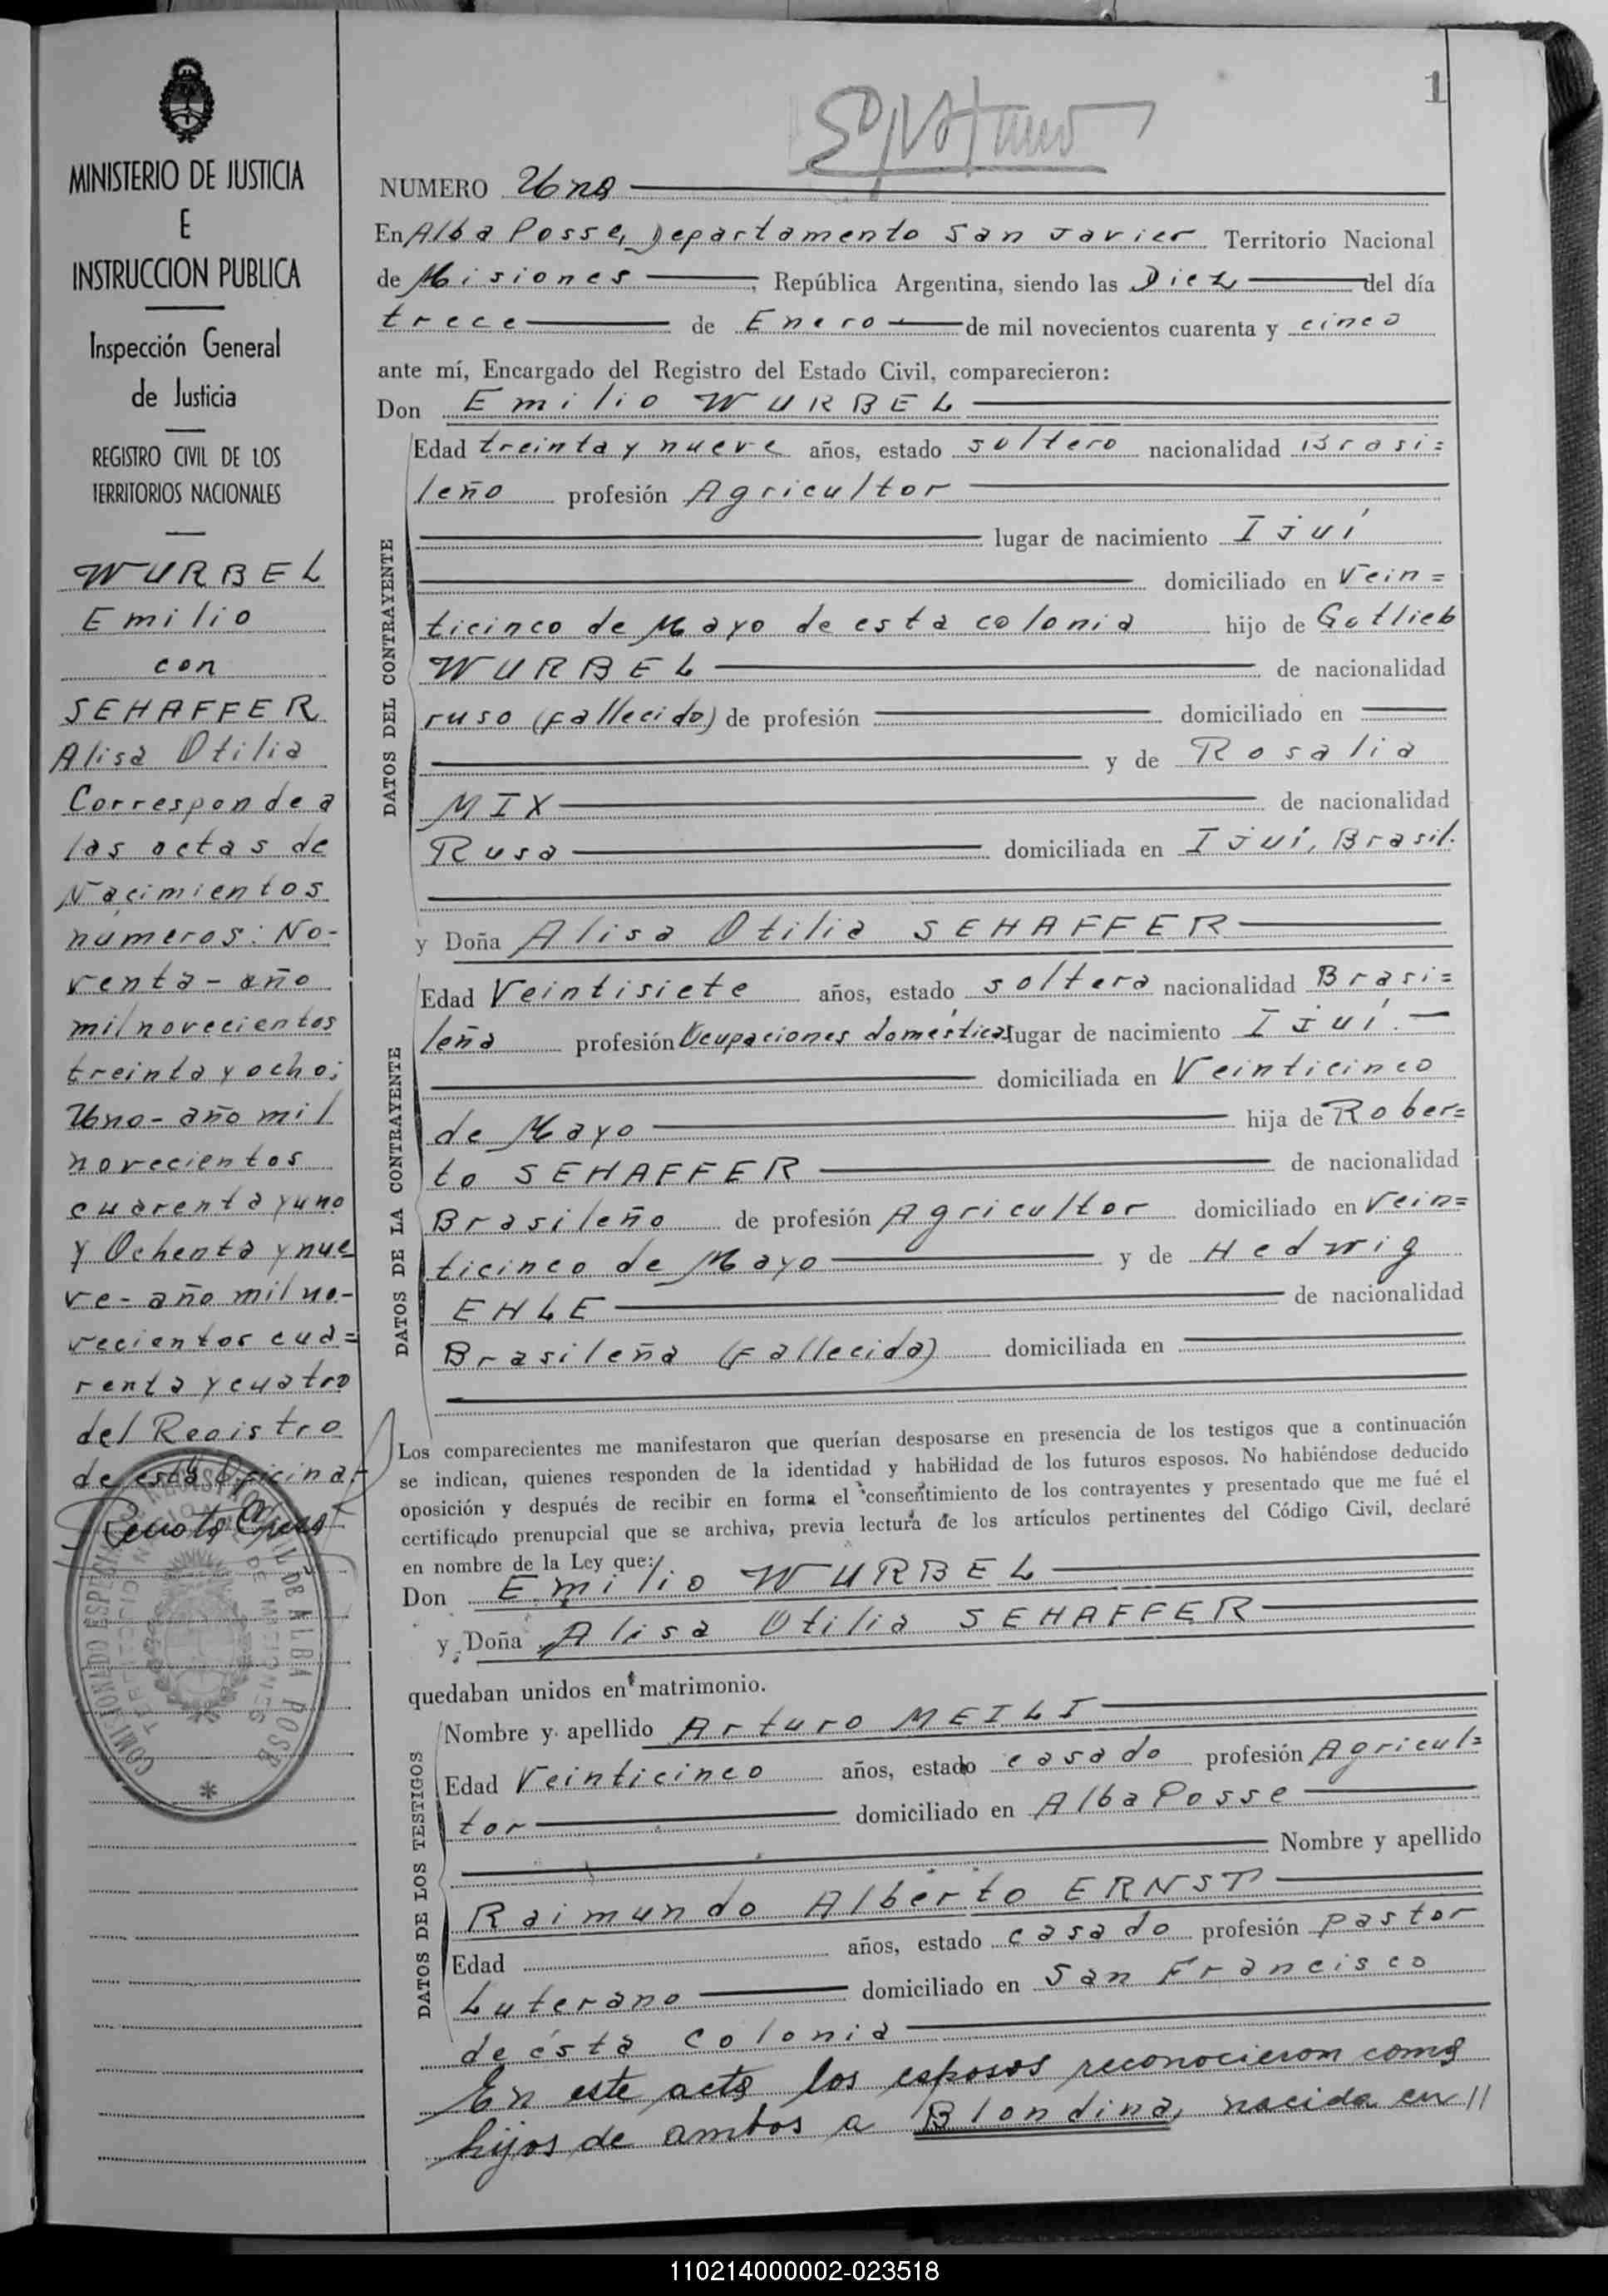 1
NUMERO Una
En Alba Posse, Departamento San Javier Territorio Nacional
de Misiones, República Argentina, siendo las Diez del día
trece de Enero de mil novecientos cuarenta y cinco
ante mí, Encargado del Registro del Estado Civil, comparecieron:
Don Emilio WURBEL
DATOS DEL CONTRAYENTE
Edad treinta y nueve años, estado soltero nacionalidad Brasi=
leño profesión Agricultor
lugar de nacimiento Ijuí
domiciliado en Vein=
ticinco de Mayo de esta colonia hijo de Gotlieb
WURBEL de nacionalidad
ruso (fallecido) de profesión domiciliado en
y de Rosalia
MIX de nacionalidad
Rusa domiciliada en Ijuí, Brasil.
y Doña Alisa Otilia SEHAFFER
DATOS DE LA CONTRAYENTE
Edad Veintisiete años, estado soltera nacionalidad Brasi=
leña profesión Ocupaciones domésticas lugar de nacimiento Ijuí.
domiciliada en Veinticinco
de Mayo hija de Rober=
to SEHAFFER de nacionalidad
Brasileño de profesión Agricultor domiciliado en Vein=
ticinco de Mayo y de Hedwig
EHLE de nacionalidad
Brasileña (fallecida) domiciliada en
Los comparecientes me manifestaron que querían desposarse en presencia de los testigos que a continuación
se indican, quienes responden de la identidad y habilidad de los futuros esposos. No habiéndose deducido
oposición y después de recibir en forma el consentimiento de los contrayentes y presentado que me fué el
certificado prenupcial que se archiva, previa lectura de los artículos pertinentes del Código Civil, declaré
en nombre de la Ley que:
Don Emilio WURBEL
y Doña Alisa Otilia SEHAFFER
quedaban unidos en matrimonio.
DATOS DE LOS TESTIGOS
Nombre y apellido Arturo MEILI
Edad Veinticinco años, estado casado profesión Agricul=
tor domiciliado en Alba Posse
Nombre y apellido
Raimundo Alberto ERNST
Edad años, estado casado profesión pastor
Luterano domiciliado en San Francisco
de ésta colonia
En este acto los esposos reconocieron como
hijos de ambos a Blondina, nacida en //
MINISTERIO DE JUSTICIA
E
INSTRUCCION PUBLICA
Inspección General
de Justicia
REGISTRO CIVIL DE LOS
TERRITORIOS NACIONALES
WURBEL
Emilio
con
SEHAFFER
Alisa Otilia
Corresponde a
las actas de
Nacimientos
números: No-
venta - año
mil novecientos
treinta y ocho;
Uno - año mil
novecientos
cuarenta y uno
y Ochenta y nue
ve - año mil no-
vecientos cua=
renta y cuatro
del Registro
de esta Oficina.-
COMISIONADO ESPECIAL REGISTRO CIVIL DE ALBA POSSE
TERRITORIO NACIONAL DE MISIONES
110214000002-023518